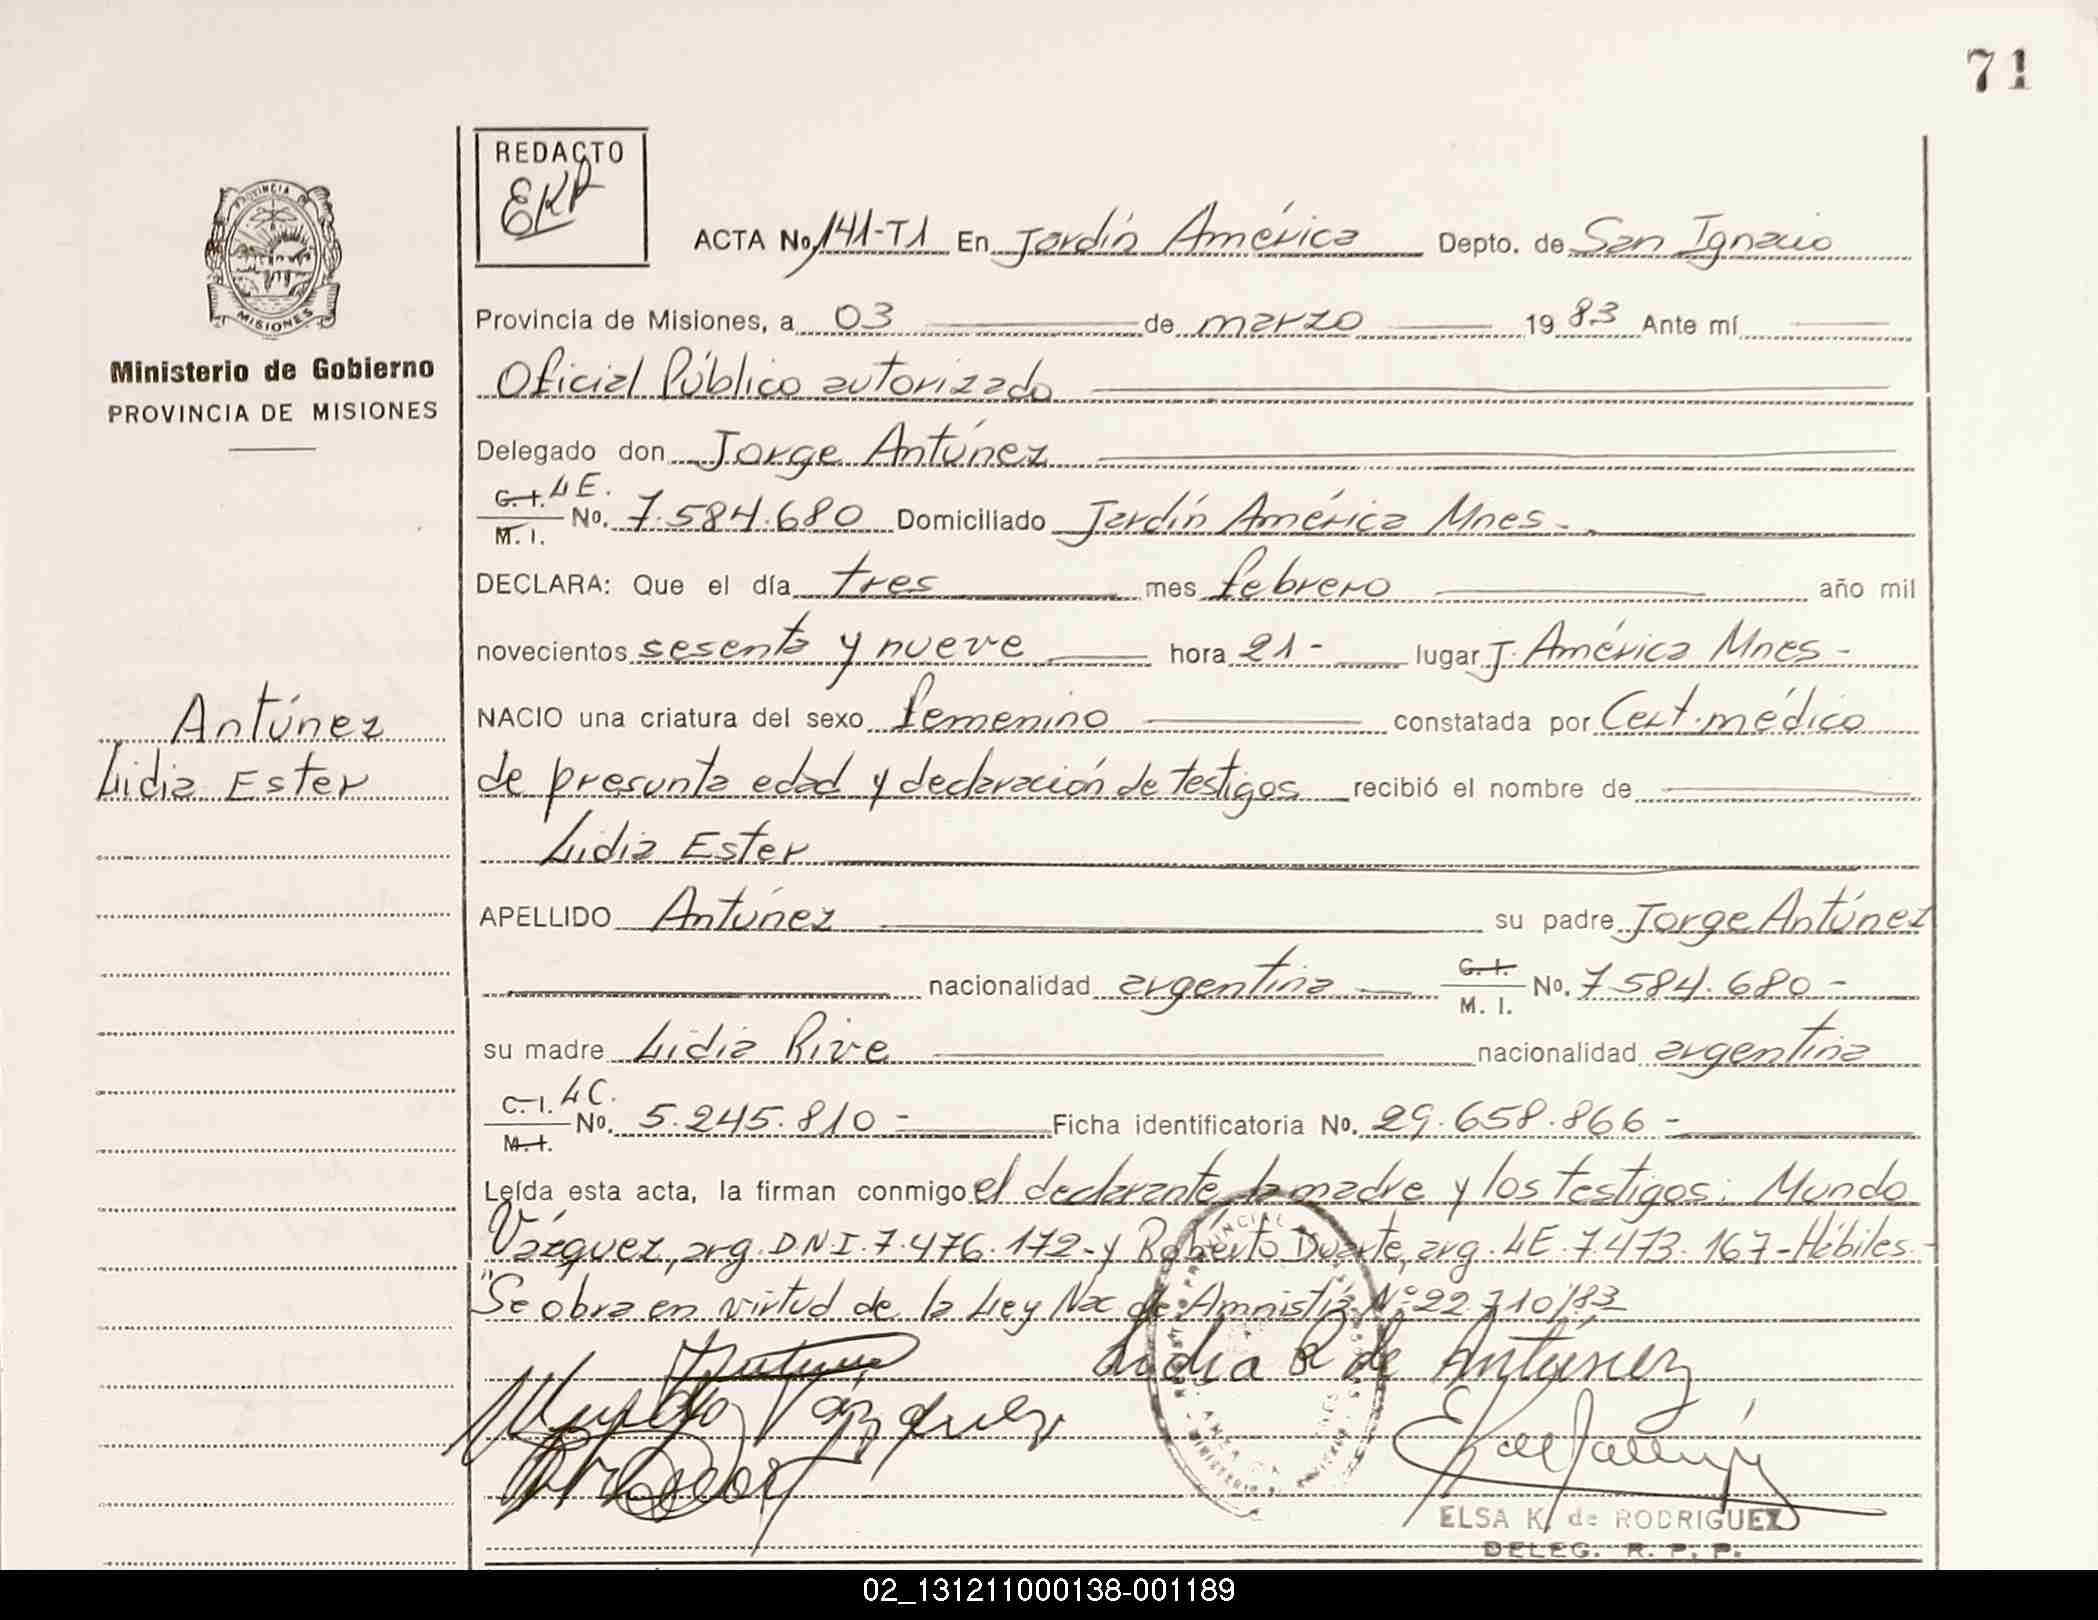 71
REDACTO
EKR
PROVINCIA
MISIONES
Ministerio de Gobierno
PROVINCIA DE MISIONES
ACTA No. 141-T1 En Jardín América Depto. de San Ignacio
Provincia de Misiones, a 03 de marzo 1983 Ante mí
Oficial Público autorizado
Delegado don Jorge Antúnez
C. I. LE. M. I. No. 7.584.680 Domiciliado Jardín América Mnes.
DECLARA: Que el día tres mes febrero año mil
novecientos sesenta y nueve hora 21- lugar J. América Mnes-
NACIO una criatura del sexo femenino constatada por Cert. médico
de presunta edad y declaración de testigos recibió el nombre de
Lidia Ester
Antúnez
Lidia Ester
APELLIDO Antúnez su padre Jorge Antúnez
nacionalidad argentina C. I. M. I. No. 7.584.680-
su madre Lidia Rive nacionalidad argentina
C. I. LC. M. I. No. 5.245.810- Ficha identificatoria No. 29.658.866-
Leída esta acta, la firman conmigo el declarante la madre y los testigos: Mundo
Vázquez, arg. D.N.I. 7.476.172-y Roberto Duarte, arg. LE. 7.473.167-Hábiles.-
"Se obra en virtud de la Ley Nac de Amnistía Nº 22.710/83
Lidia R de Antúnez
Mundo Vázquez
ELSA K. de RODRIGUEZ
DELEG. R. P. P.
02_131211000138-001189